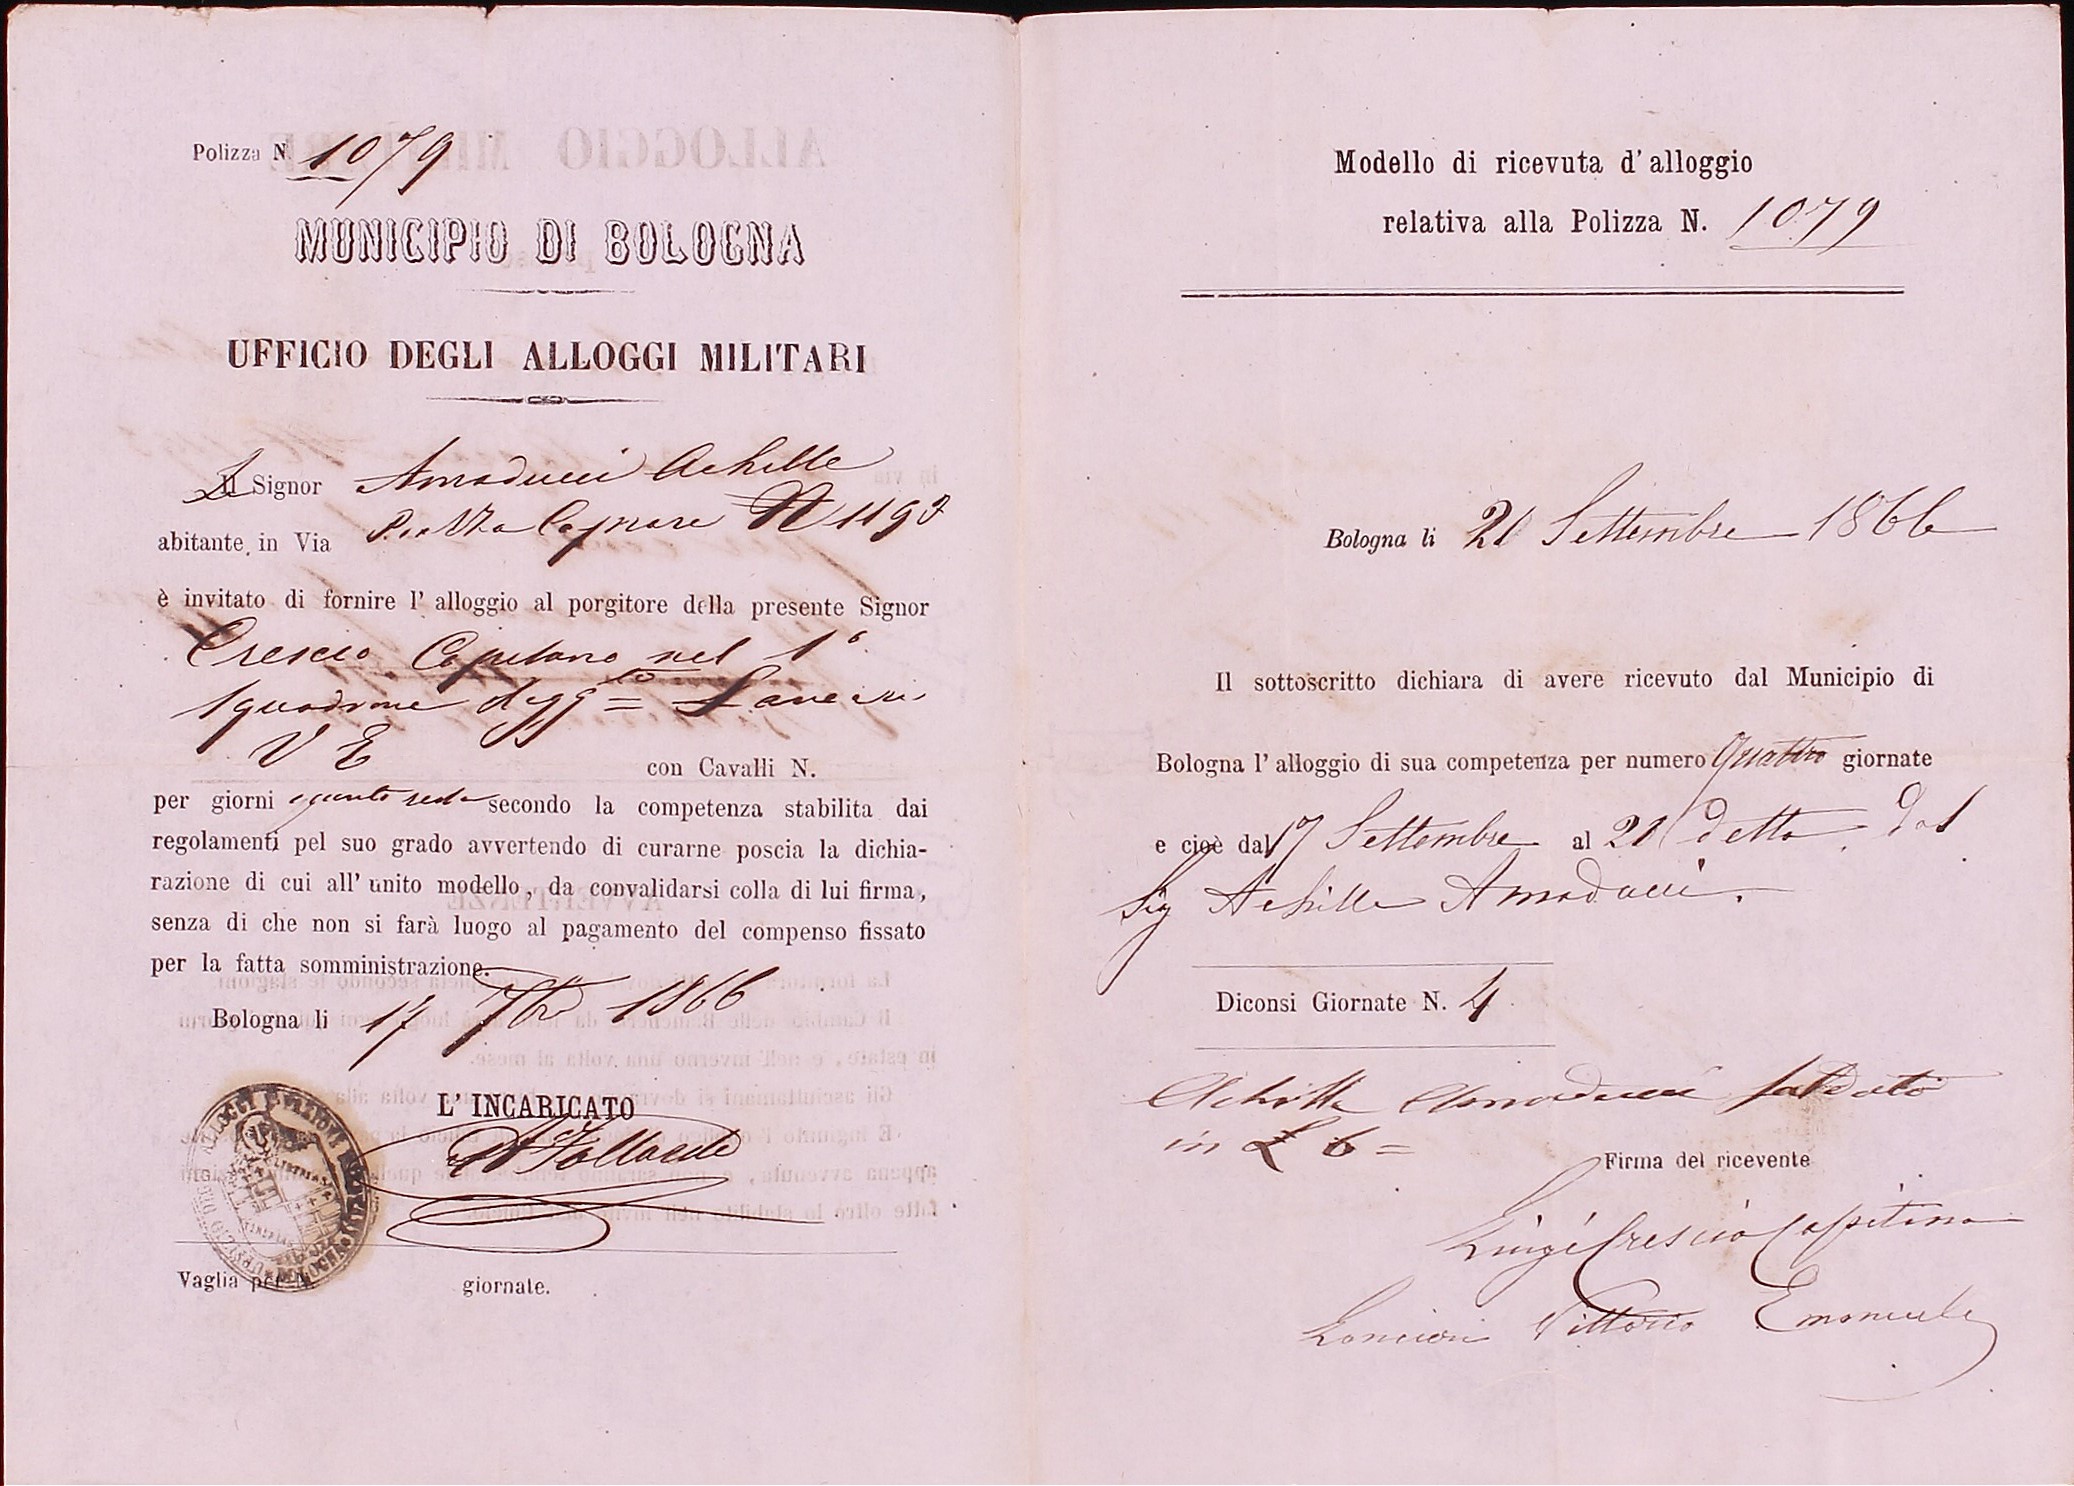 Polizza N. 1079
MUNICIPIO DI BOLOGNA
UFFICIO DEGLI ALLOGGI MILITARI
Il Signor Amaducci Achille
abitante in Via N 1193
è invitato di fornire l' alloggio al porgitore della presente Signor
Crescio Capitano nel 1°
squadrone Lancieri
V E
con Cavalli N.
per giorni secondo la competenza stabilita dai
regolamenti pel suo grado avvertendo di curarne poscia la dichia-
razione di cui all' unito modello, da convalidarsi colla di lui firma,
senza di che non si farà luogo al pagamento del compenso fissato
per la fatta somministrazione.
Bologna li 17 7bre 1866
L' INCARICATO
Vaglia per N. giornate.
Modello di ricevuta d' alloggio
relativa alla Polizza N. 1079
Bologna li 20 Settembre 1866
Il sottoscritto dichiara di avere ricevuto dal Municipio di
Bologna l' alloggio di sua competenza per numero quattro giornate
e cioè dal 17 Settembre al 20 detto dal
Sig Achille Amaducci.
Diconsi Giornate N. 4
Achille Amaducci saldato
in £ 6 =
Firma del ricevente
Luigi Crescio Capitano
Lancieri Vittorio Emanuele